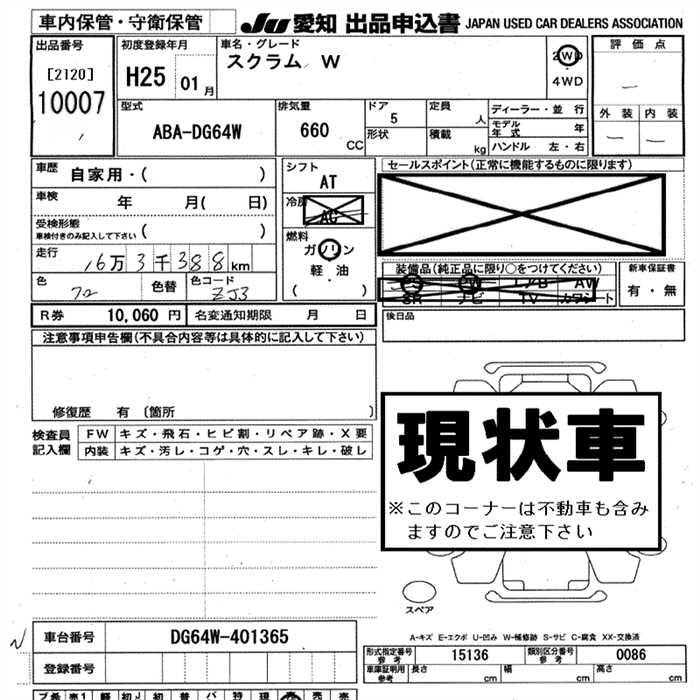 車内保管・守衛保管 JU 愛知 出品申込書 JAPAN USED CAR DEALERS ASSOCIATION
出品番号 [2120] 10007
初度登録年月 H25 01月
車名・グレード スクラム W
2WD・4WD
評価点 －
外装 － 内装 －
型式 ABA-DG64W
排気量 660 CC
ドア 5 定員 人
形状 積載 kg
ディーラー・並行
モデル年式 年
ハンドル 左・右
車歴 自家用・( )
車検 年 月( 日)
受検形態 車検付きのみ記入して下さい ( )
走行 16万3千388km
色 色替 色コード ZJ3
シフト AT
冷房 AC
燃料 ガソリン・軽油・( )
セールスポイント(正常に機能するものに限ります)
装備品(純正品に限り○をつけてください)
PS PW エアB AW
SR ナビ TV カワシート
新車保証書 有・無
R券 10,060円 名変通知期限 月 日
後日品
注意事項申告欄(不具合内容等は具体的に記入して下さい)
修復歴 有 〔箇所 〕
検査員記入欄
FW キズ・飛石・ヒビ割・リペア跡・X要
内装 キズ・汚レ・コゲ・穴・スレ・キレ・破レ
現状車
※このコーナーは不動車も含み
ますのでご注意下さい
スペア
A-キズ E-エクボ U-凹み W-補修跡 S-サビ C-腐食 XX-交換済
N
車台番号 DG64W-401365
登録番号
形式指定番号 参考 15136 類別区分番号 参考 0086
車庫証明用 参考 長さ cm 幅 cm 高さ cm